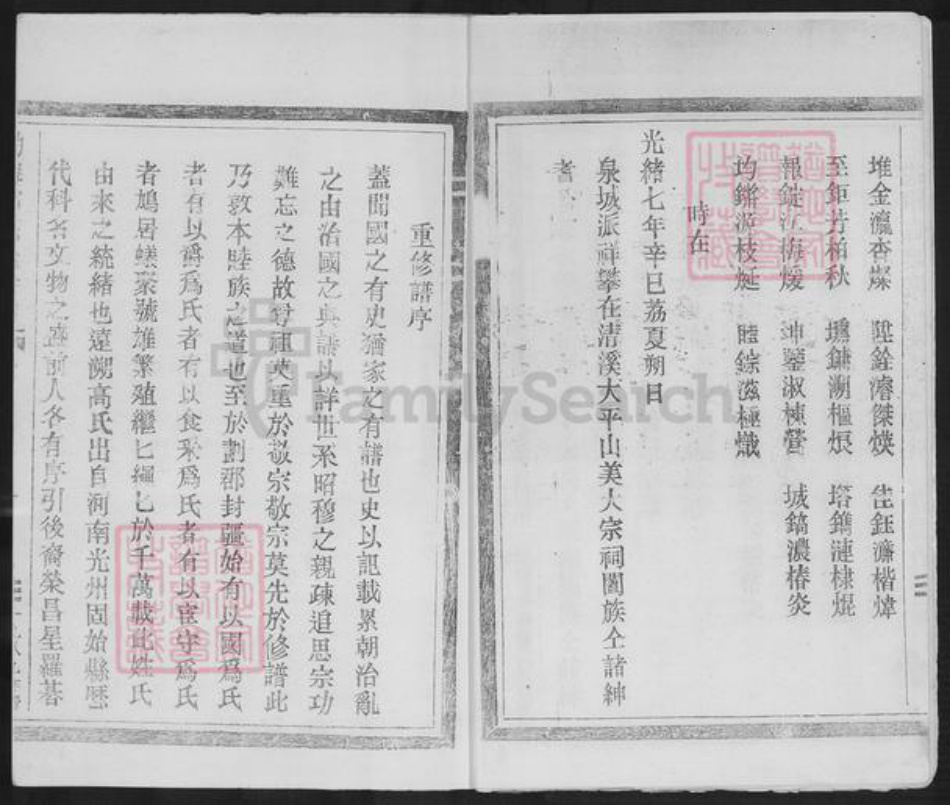 堆金瀛杏燦　陞銓濬傑煐　𡊮鈺濂楷煒
至鉅芳柏秋　墉鏞湖樞烺　塔鐫漣棣焜
報錠江梅煖　坤鑒淑棟營　城鎬濃椿炎
均鏘游枝烻　睦錝滋極熾
時在
光緒七年辛巳荔夏朔日
泉城派祥攀在清溪大平山美大宗祠闔族仝諸紳
耆
重修譜序
蓋聞國之有史猶家之有譜也史以記載累朝治亂
之由治國之典譜以詳世系昭穆之親疎追思宗功
難忘之德故尊祖莫重於敬宗敬宗莫先於修譜此
乃敦本睦族之道也至於劃郡封疆始有以國為氏
者有以爵為氏者有以食采為氏者有以官守為氏
者鳩居蟻聚號雄繁殖繼匕繩匕於千萬載此姓氏
由來之統緒也遠溯高氏出自河南光州固始縣歷
代科名文物之盛前人各有序引後裔榮昌星羅碁
FamilySearch